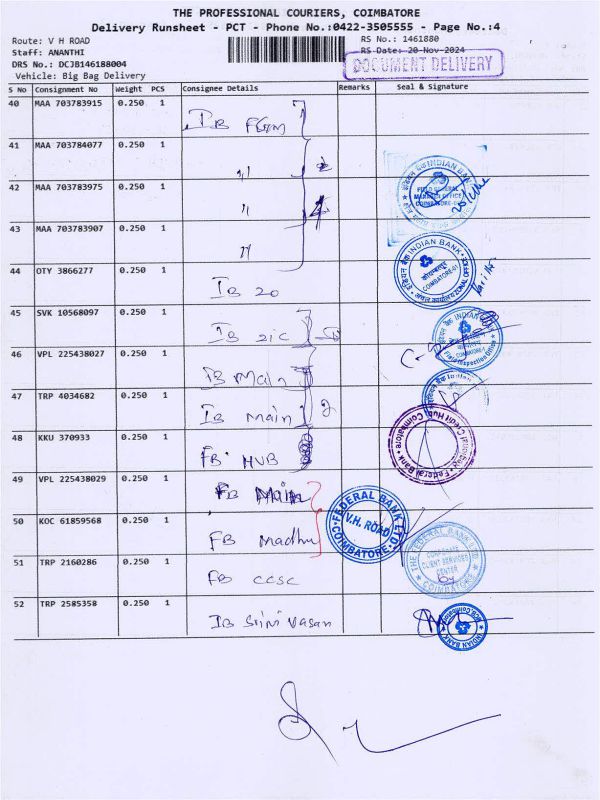 THE PROFESSIONAL COURIERS, COIMBATORE
Delivery Runsheet - PCT - Phone No.:0422-3505555 - Page No.:4
Route: V H ROAD
RS No.: 1461880
Staff: ANANTHI
RS Date: 20-Nov-2024
DRS No.: DCJB146188004
DOCUMENT DELIVERY
Vehicle: Big Bag Delivery
S No Consignment No Weight PCS Consignee Details Remarks Seal & Signature
40 MAA 703783915 0.250 1 IB
41 MAA 703784077 0.250 1 "
42 MAA 703783975 0.250 1 "
INDIAN BANK
FIELD GENERAL
COIMBATORE
43 MAA 703783907 0.250 1 "
INDIAN BANK
COIMBATORE-01
ZONAL OFFICE
44 OTY 3866277 0.250 1 IB ZO
45 SVK 10568097 0.250 1 IB ZIC
46 VPL 225438027 0.250 1 IB Main
47 TRP 4034682 0.250 1 IB Main 2
48 KKU 370933 0.250 1 FB HUB
Credit Hub, Coimbatore
Federal Bank
49 VPL 225438029 0.250 1 FB Main
50 KOC 61859568 0.250 1 FB Madhu
FEDERAL BANK LTD.
V.H. ROAD
COIMBATORE
THE FEDERAL BANK LTD.
CORPORATE
CLIENT SERVICES
CENTER
COIMBATORE
51 TRP 2160286 0.250 1 FB CCSC
52 TRP 2585358 0.250 1 IB Srini Vasan
INDIAN BANK